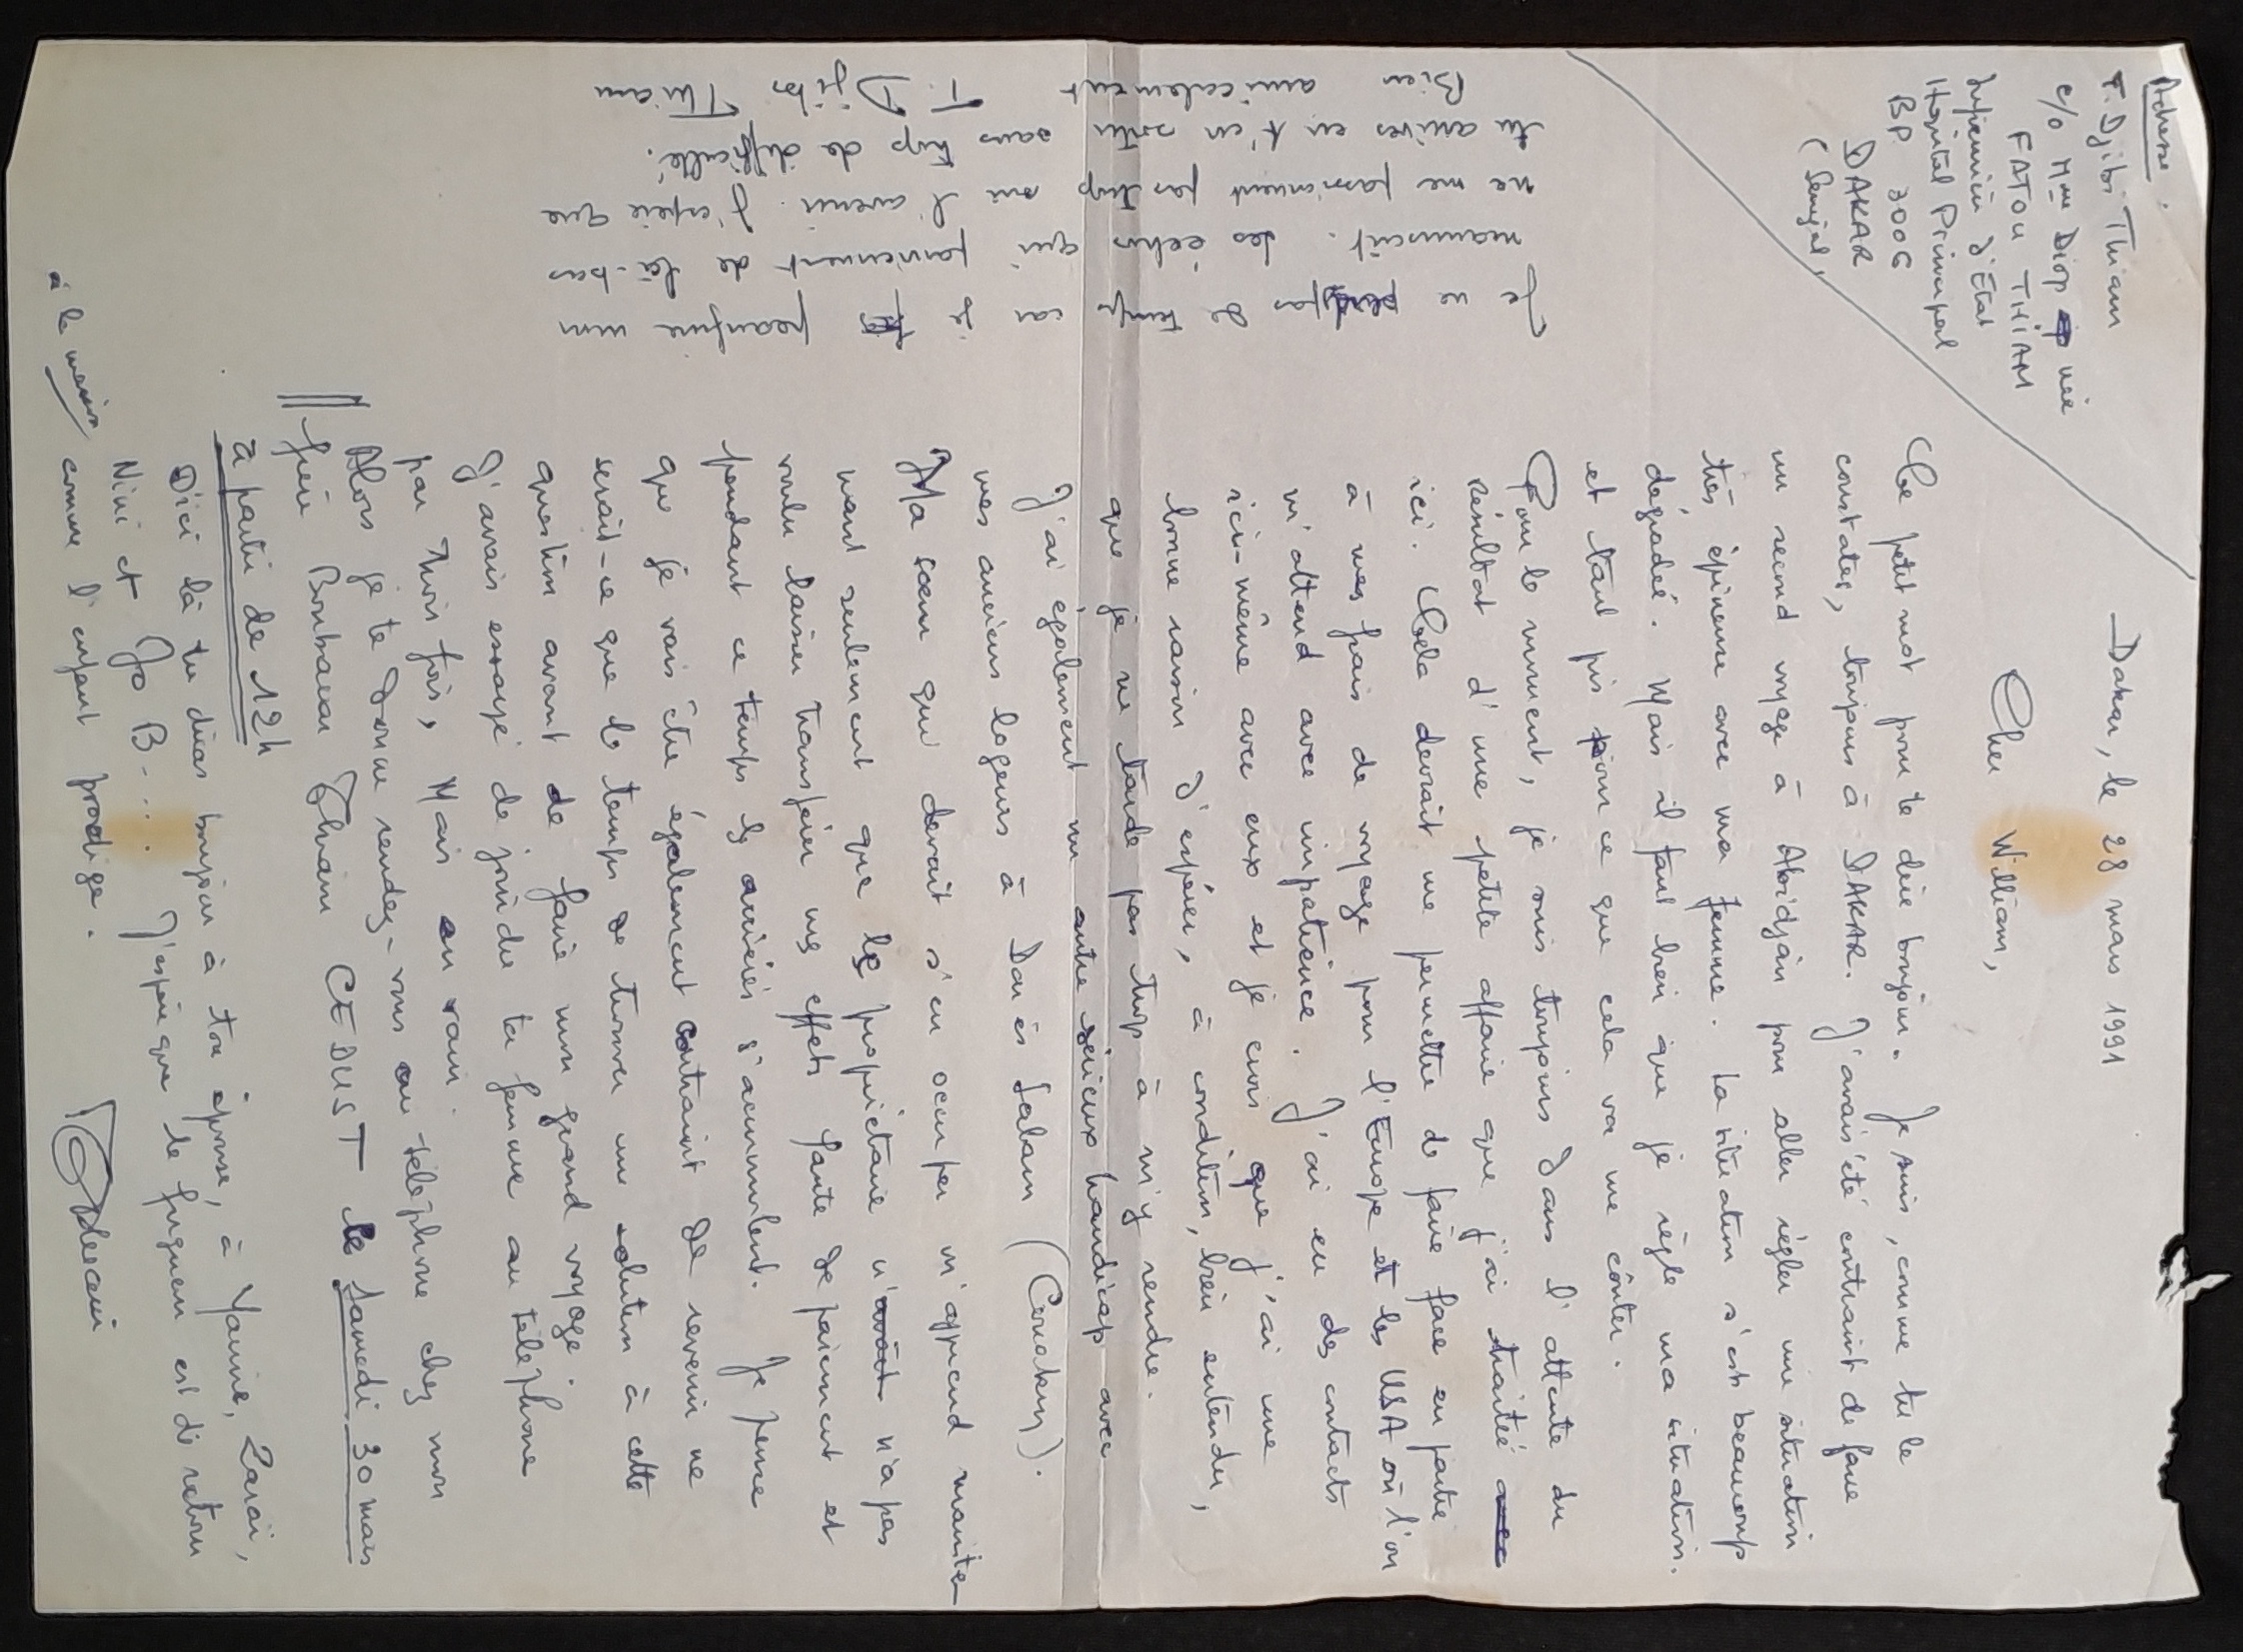 Adresse :
T. Djibi Thiam
c/o Mme Diop née
FATOU THIAM
Infirmière d'Etat
Hôpital Principal
BP 3006
DAKAR
(Sénégal)
Dakar, le 28 mars 1991
Cher William,
Ce petit mot pour te dire bonjour. Je suis, comme tu le
constates, toujours à DAKAR. J'avais été contraint de faire
un second voyage à Abidjan pour aller régler une situation
très épineuse avec ma femme. La situation s'est beaucoup
dégradée. Mais il faut bien que je règle ma situation.
et tant pis pour ce que cela va me coûter.
Pour le moment, je suis toujours dans l'attente du
résultat d'une petite affaire que j'ai traitée avec
ici. Cela devrait me permettre de faire face en partie
à mes frais de voyage pour l'Europe et les USA où l'on
m'attend avec impatience. J'ai eu des contacts
ici-même avec eux et je crois que j'ai une
bonne raison d'espérer, à condition, bien entendu,
que je ne tarde pas trop à m'y rendre.
J'ai également un autre sérieux handicap avec
mes anciens logeurs à Dar es Salam (Conakry).
Ma soeur qui devait s'en occuper m'apprend mainte-
nant seulement que le propriétaire n'avait n'a pas
voulu laisser transférer mes effets faute de paiement et
pendant ce temps les arriérés s'accumulent. Je pense
que je vais être également contraint de revenir ne
serait-ce que le temps de trouver une solution à cette
question avant de faire mon grand voyage.
J'avais essayé de joindre ta femme au téléphone
par trois fois, Mais en vain.
Alors je te donne rendez-vous au téléphone chez mon
frère Boubacar Thiam CEDUST le Samedi 30 mars
à partir de 12h
D'ici là tu diras bonjour à ton épouse, à Yacine, Zaraï,
Nini et Jo B.... J'espère que le fugueur est de retour
à la maison comme l'enfant prodige.
Je ne perds pas de temps car je peaufine mon
manuscrit. Les échos qui parviennent de là-bas
ne me passionnent pas trop ni l'avenir. J'espère que
tu arrives en t'en sortir sans trop de difficulté.
Bien amicalement T. Djibi Thiam